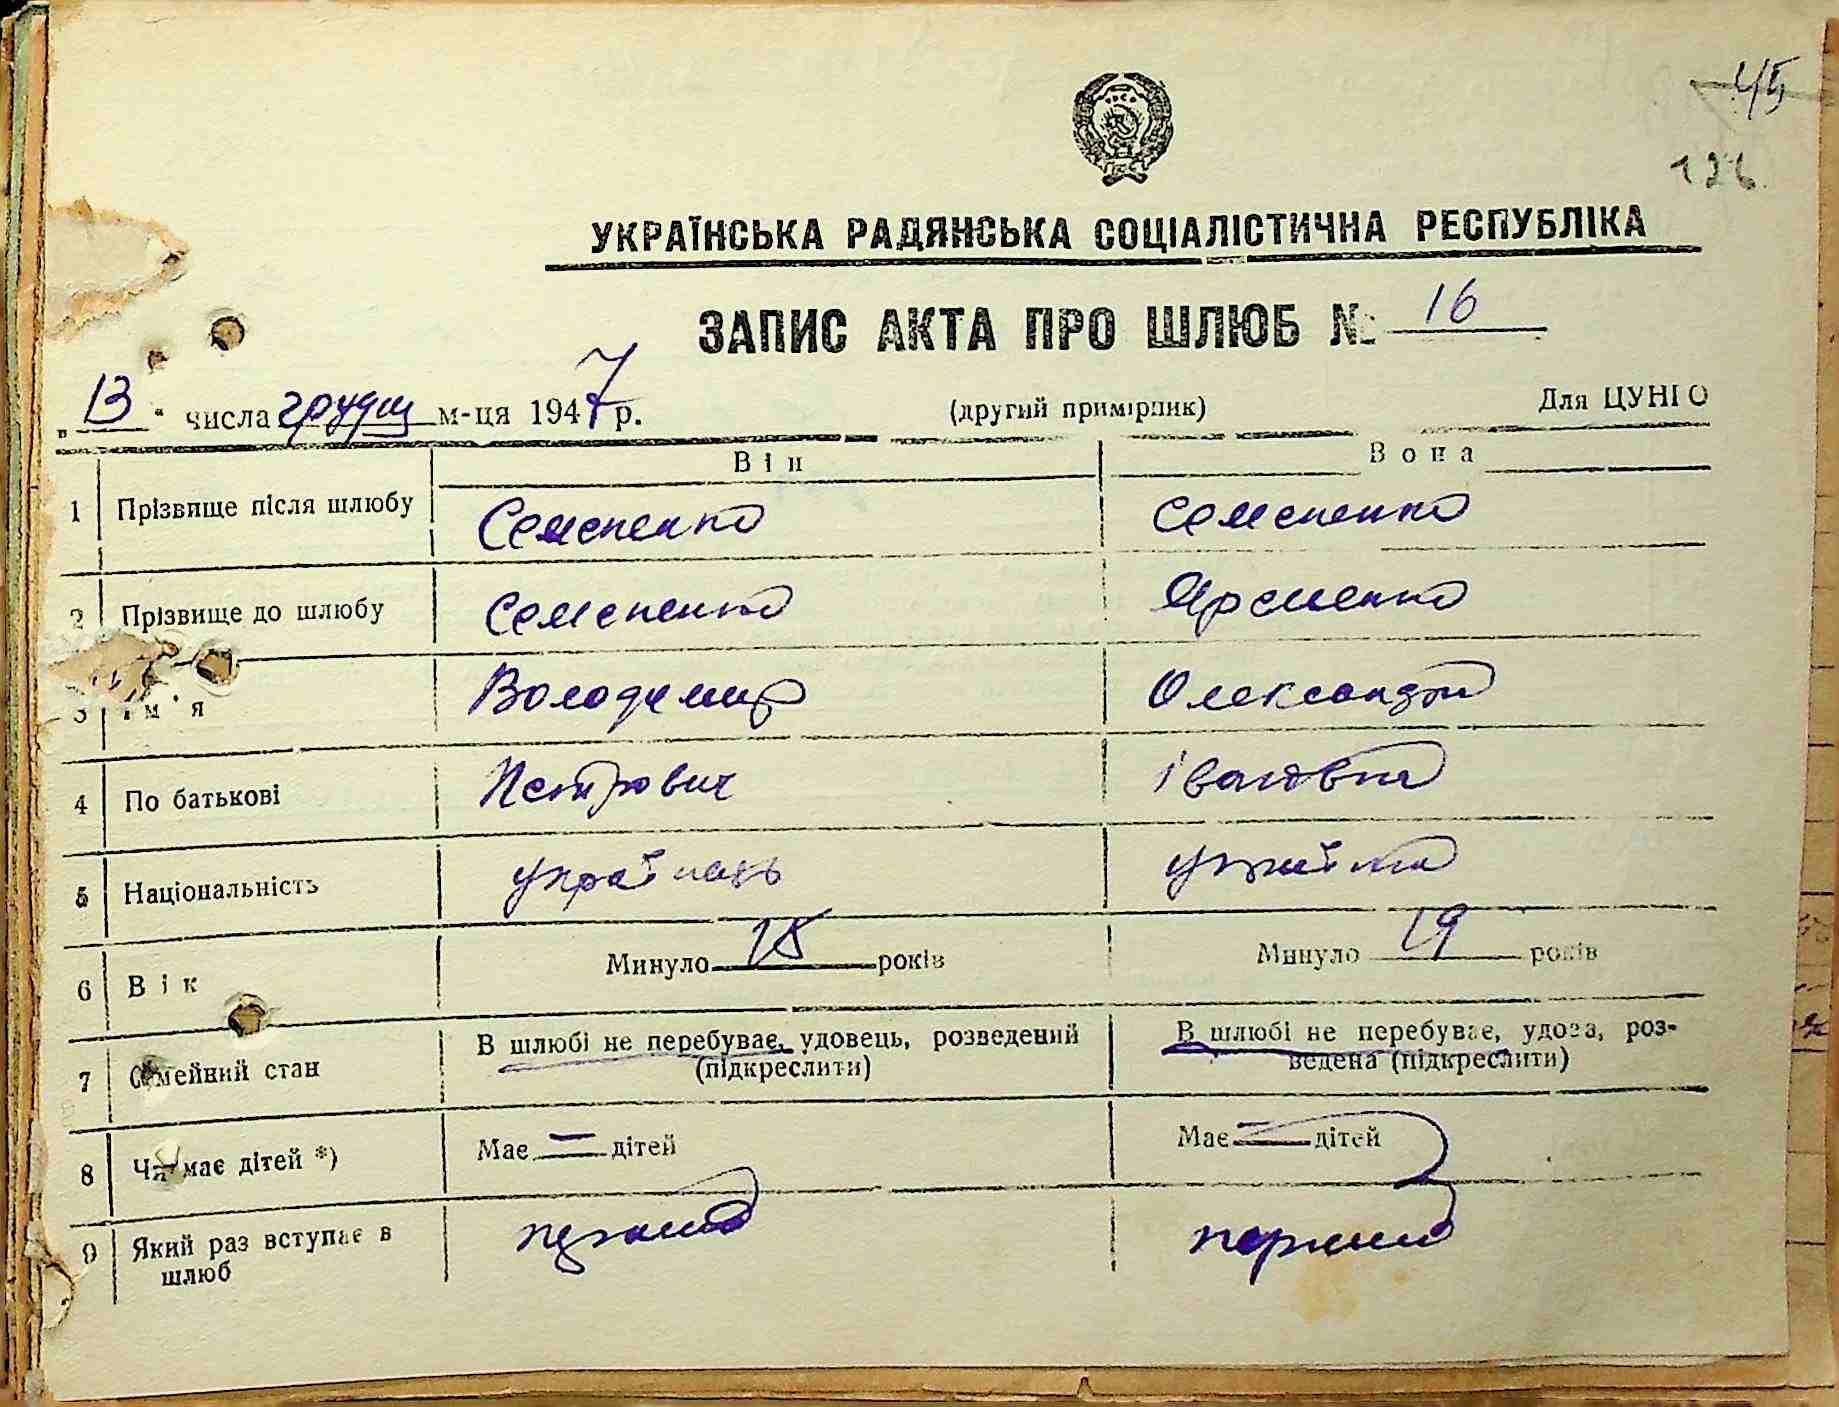 45
126
УКРАЇНСЬКА РАДЯНСЬКА СОЦІАЛІСТИЧНА РЕСПУБЛІКА
ЗАПИС АКТА ПРО ШЛЮБ № 16
„13“ числа грудня м-ця 1947 р. (другий примірник) Для ЦУНГО
Він Вона
1 Прізвище після шлюбу Семененко Семененко
2 Прізвище до шлюбу Семененко Яременко
3 Ім'я Володимир Олександра
4 По батькові Петрович Івановна
5 Національність українець українка
6 Вік Минуло років Минуло 19 років
7 Сімейний стан В шлюбі не перебуває, удовець, розведений В шлюбі не перебуває, удова, роз-
(підкреслити) ведена (підкреслити)
8 Чи має дітей *) Має = дітей Має = дітей
9 Який раз вступає в перший перший
шлюб